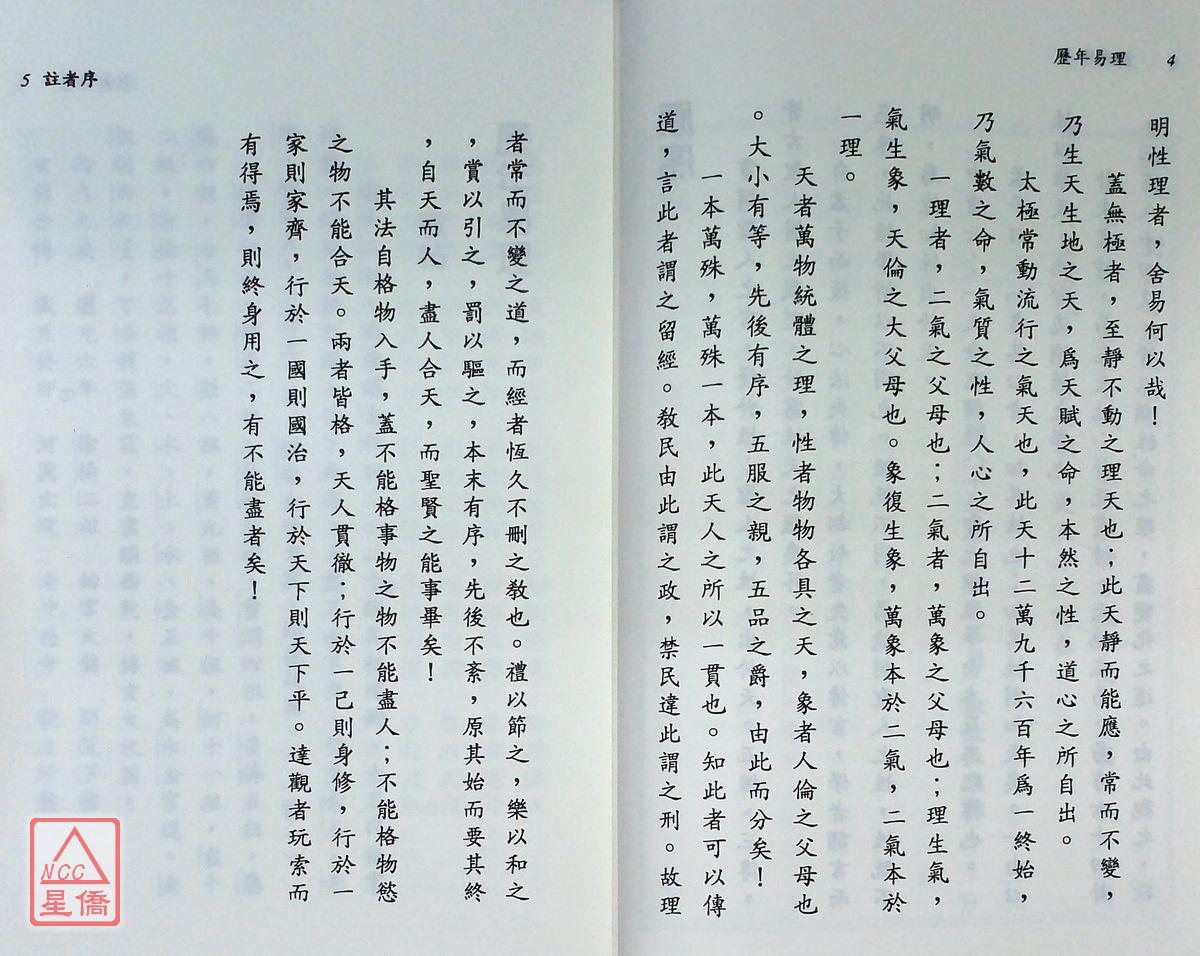 歷年易理 4
明性理者，舍易何以哉！
蓋無極者，至靜不動之理天也；此天靜而能應，常而不變，
乃生天生地之天，爲天賦之命，本然之性，道心之所自出。
太極常動流行之氣天也，此天十二萬九千六百年爲一終始，
乃氣數之命，氣質之性，人心之所自出。
一理者，二氣之父母也；二氣者，萬象之父母也；理生氣，
氣生象，天倫之大父母也。象復生象，萬象本於二氣，二氣本於
一理。
天者萬物統體之理，性者物物各具之天，象者人倫之父母也
。大小有等，先後有序，五服之親，五品之爵，由此而分矣！
一本萬殊，萬殊一本，此天人之所以一貫也。知此者可以傳
道，言此者謂之留經。敎民由此謂之政，禁民違此謂之刑。故理
5 註者序
者常而不變之道，而經者恆久不刪之敎也。禮以節之，樂以和之
，賞以引之，罰以驅之，本末有序，先後不紊，原其始而要其終
，自天而人，盡人合天，而聖賢之能事畢矣！
其法自格物入手，蓋不能格事物之物不能盡人；不能格物慾
之物不能合天。兩者皆格，天人貫徹；行於一己則身修，行於一
家則家齊，行於一國則國治，行於天下則天下平。達觀者玩索而
有得焉，則終身用之，有不能盡者矣！
NCC
星僑